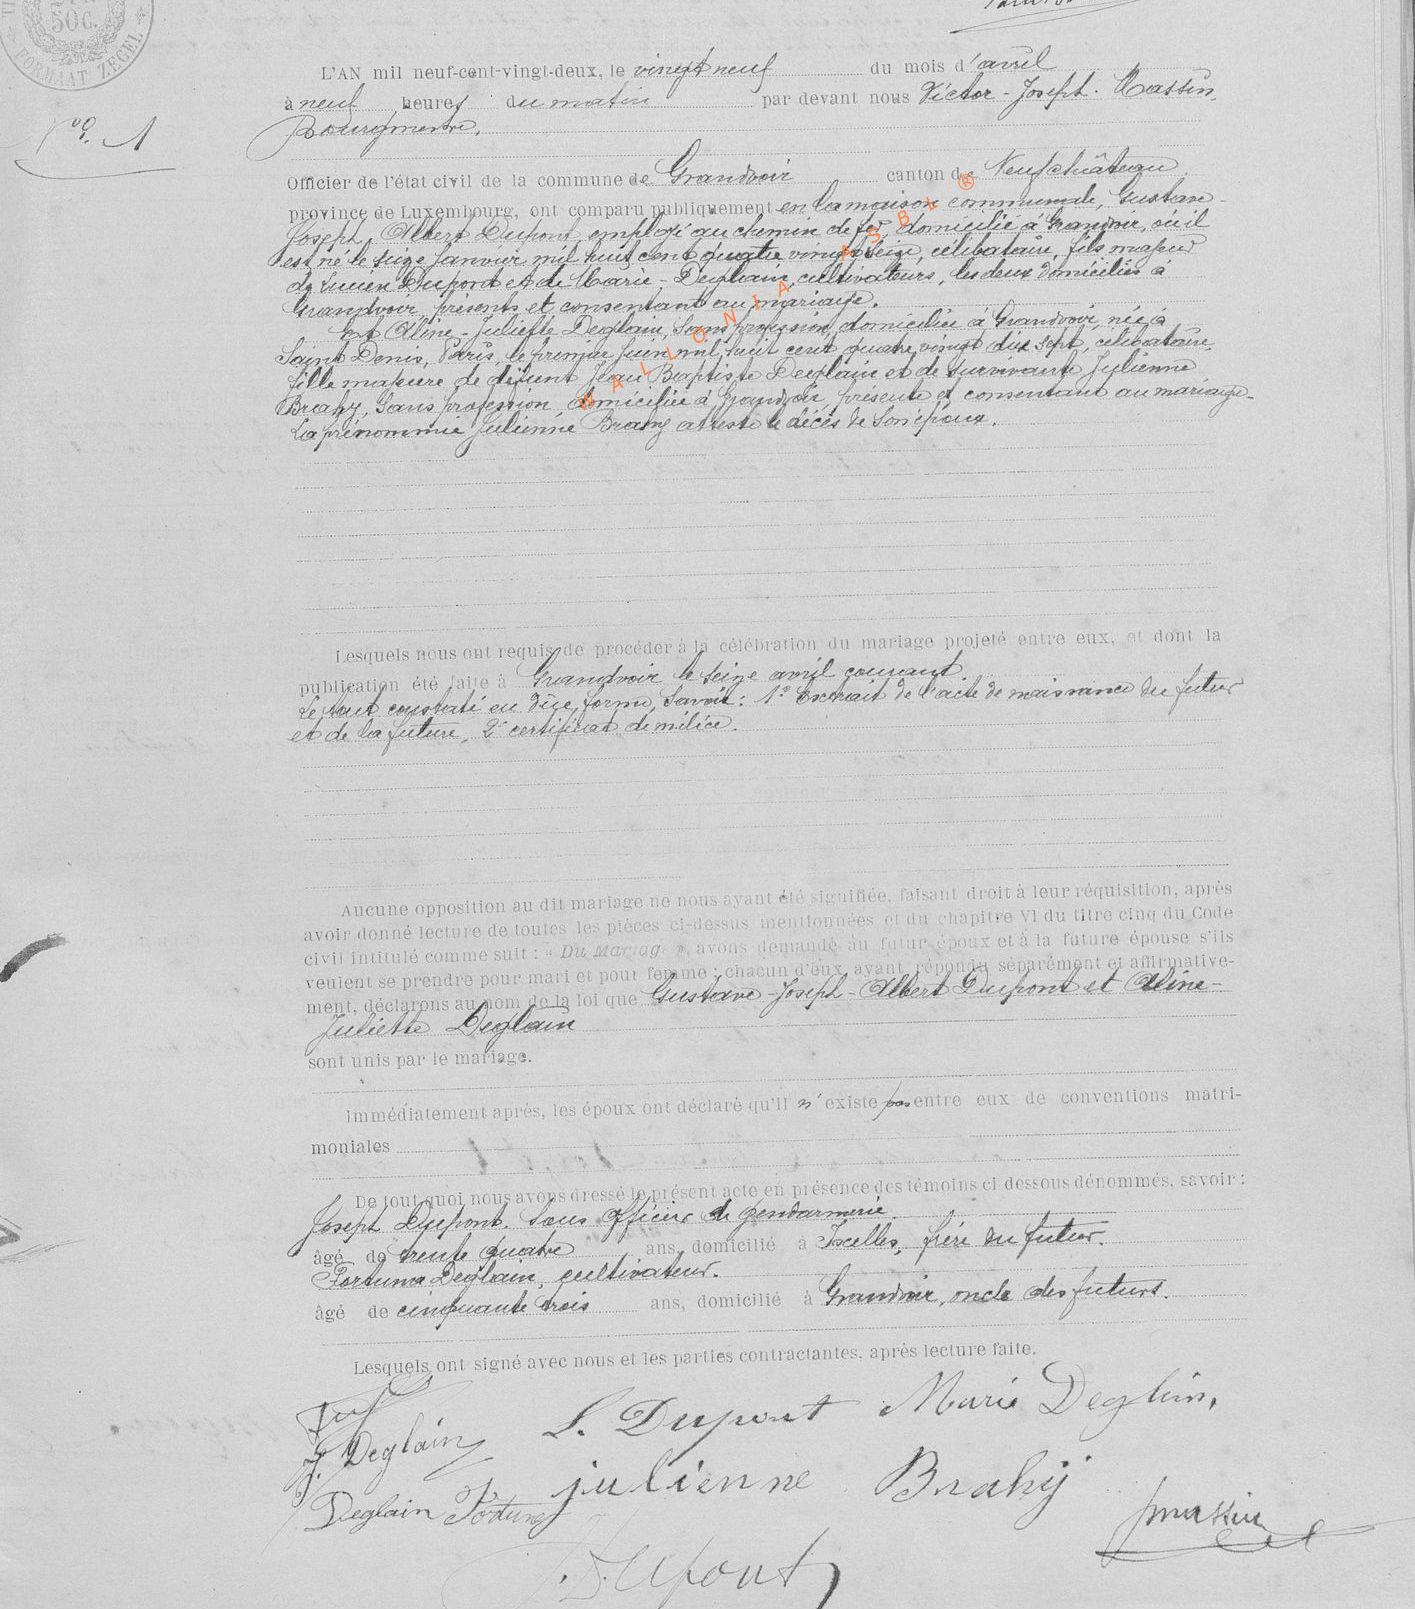 50c.
FORMAAT ZEGEL
L'AN mil neuf-cent-vingt-deux, le vingt neuf du mois d'avril
à neuf heures du matin par devant nous Victor-Joseph. Massin,
Bourgmestre.
N° 1
Officier de l'état civil de la commune de Grandvoir canton de Neufchâteau
province de Luxembourg, ont comparu publiquement en la maison communale, Gustave-
Joseph-Albert Dupont, employé au chemin de fer, domicilié à Grandvoir, où il
est né le seize janvier mil huit cent quatre vingt seize, célibataire, fils majeur
de Lucien Dupont et de Marie-Deglain, cultivateurs, les deux domiciliés à
Grandvoir, présents et consentant au mariage.
Et Aline-Juliette Deglain, sans profession, domiciliée à Grandvoir, née à
Saint Denis, Paris, le premier juin mil huit cent quatre vingt dix sept, célibataire,
fille majeure de défunt Jean Baptiste Deglain et de survivante Julienne
Brahy, sans profession, domiciliée à Grandvoir, présente et consentant au mariage-
La prénommée Julienne Brahy atteste le décès de son époux.
WALLONIA ASBL ®
Lesquels nous ont requis de procéder à la célébration du mariage projeté entre eux, et dont la
publication été faite à Grandvoir le seize avril courant
Le tout constaté en due forme, savoir: 1° Extrait de l'acte de naissance du futur
et de la future, 2° certificat de milice.
Aucune opposition au dit mariage ne nous ayant été signifiée, faisant droit à leur réquisition, après
avoir donné lecture de toutes les pièces ci-dessus mentionnées et du chapitre VI du titre cinq du Code
civil intitulé comme suit : « Du Mariage », avons demandé au futur époux et à la future épouse s'ils
veulent se prendre pour mari et pour femme ; chacun d'eux ayant répondu séparément et affirmative-
ment, déclarons au nom de la loi que Gustave-Joseph-Albert Dupont et Aline-
Juliette Deglain
sont unis par le mariage.
Immédiatement après, les époux ont déclaré qu'il n'existe pas entre eux de conventions matri-
moniales
De tout quoi nous avons dressé le présent acte en présence des témoins ci dessous dénommés, savoir :
Joseph Dupont, sous officier de gendarmerie
âgé de trente quatre ans, domicilié à Ixelles, frère du futur.
Fortuné Deglain, cultivateur.
âgé de cinquante trois ans, domicilié à Grandvoir, oncle des futurs.
Lesquels ont signé avec nous et les parties contractantes, après lecture faite.
L. Dupont Marie Deglain,
J. Deglain
julienne Brahy
Deglain Fortuné
Massin
J. Dupont